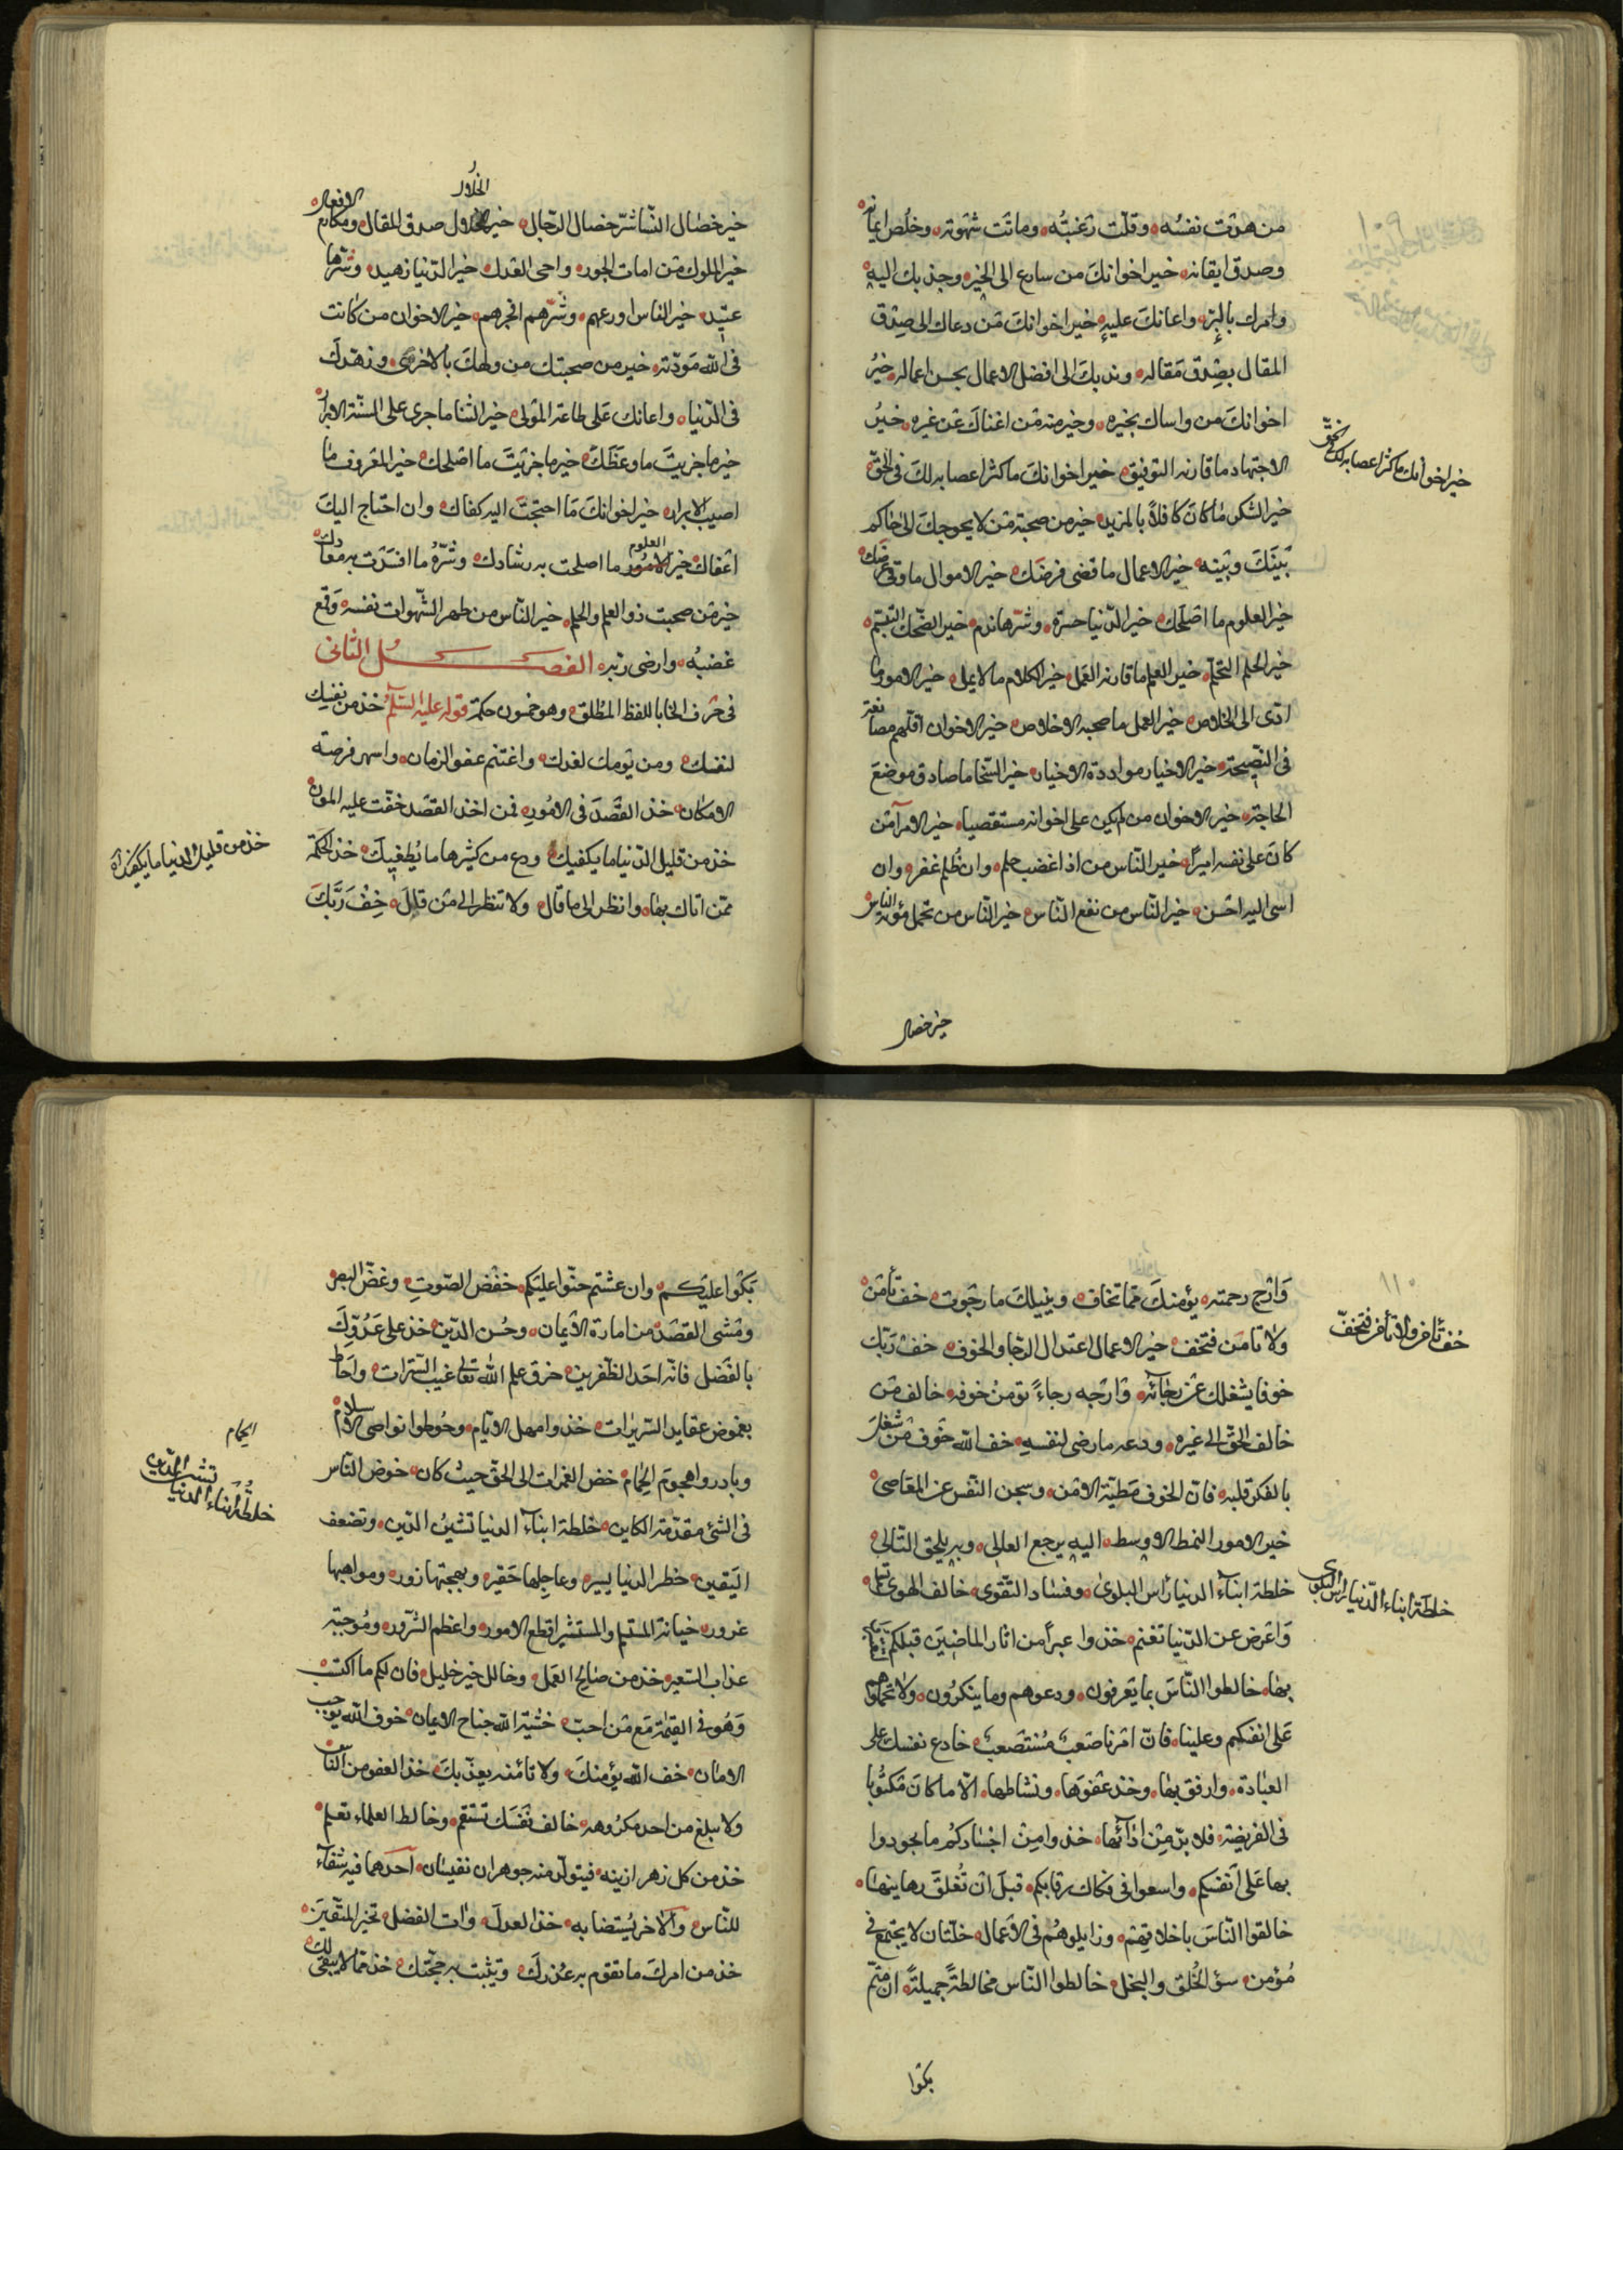 من هذبت نفسه وقلت رغبته وماتت شهوته وخلص ايمانه
وصدق ايقانه خير اخوانك من سارع الى الخير وجذبك اليه
وامرك بالبر واعانك عليه خير اخوانك من دعاك الى صدق
المقال بصدق مقاله وندبك الى افضل الاعمال بحسن اعماله خير
اخوانك من واساك بخيره وخير منه من اغناك عن غيره خير
الاجتهاد ما قارنه التوفيق خير اخوانك ما كثر اعضابه لك فى الحق
خير اخوانك ما كثر اعضابه لك فى الحق
خير الشكر ما كان كافلا بالمزيد خير من صحبته من لا يحوجك الى حاكم
بينك وبينه خير الاعمال ما قضى فرضك خير الاموال ما وقى عرضك
خير العلوم ما اصلحك خير الدنيا حسرة وشرها ندم خير الضحك التبسم
خير الحلم التحلم خير العلم ما قارنه العمل خير الكلام ما لا يمل خير الامور ما
ادى الى الخلاص خير العمل ما صحبه الاخلاص خير الاخوان اقلهم مصانعة
فى النصيحة خير الاختيار موادة الاخيار خير السخا ما صادف موضع
الحاجة خير الاخوان من لم يكن على اخوانه مستقصيا خير الامرآ من
كان على نفسه اميرا خير الناس من اذا اغضب حلم وان ظلم غفر وان
اسى اليه احسن خير الناس من نفع الناس خير الناس من تحمل مؤنة الناس
خير خصال
خير خصال النسا شر خصال الرجال خير الخلال صدق المقال ومكارم الافعال
خير الملوك من امات الجور واحى العدل خير الدنيا زهيد وشرها
عتيد خير الناس اورعهم وشرهم افجرهم خير الاخوان من كانت
فى الله مودته خير من صحبتك من ولهك بالاخرى وزهدك
فى الدنيا واعانك على طاعة المولى خير الثنا ما جرى على السنة الابرار
خير ما جربت ما وعظك خير ما جربت ما اصلحك خير المعروف ما
اصيب الابرار خير اخوانك ما احتجت اليه كفاك وان احتاج اليك
اعفاك خير العلوم ما اصلحت به رشادك وشره ما افسدت به معادك
خير من صحبت ذوالعلم والحلم خير الناس من طهر الشهوات نفسه وقمع
غضبه وارضى ربه الفصل الثانى
فى حرف الخا باللفظ المطلق وهو خمسون حكمة قوله عليه السلم خذ من نفسك
لنفسك ومن يومك لغدك واغتنم عفو الزمان وانتهز فرصة
الامكان خذ القصد فى الامور فمن اخذ القصد خفت عليه المون
خذ من قليل الدنيا ما يكفيك ودع من كثيرها ما يطغيك خذ الحكمة
خذ من قليل الدنيا ما يكفيك
ممن اتاك بها وانظر الى ما قال ولا تنظر الى من قال خف ربك
١١٠
وارج رحمته يؤمنك مما تخاف وينيلك ما رجوت خف تأمن
ولا تأمن فتخف خير الاعمال اعتدال الرجا والخوف خف ربك
خف تأمن ولا تأمن فتخف
خوفا يشغلك عن رجائه وارجه رجاء تومن خوفه خالف من
خالف الحق الى غيره ودعه ما رضى لنفسه خف الله خوف من شغل
بالفكر قلبه فان الخوف مطية الامن وسجن النفس عن المعاصى
خير الامور النمط الاوسط اليه يرجع العالى وبه يلحق التالى
خلطة ابناء الدنيا رأس البلوى وفساد التقوى خالف الهوى تسلم
خلطة ابناء الدنيا رأس البلوى
واعرض عن الدنيا تغنم خذوا عبرا من اثار الماضين قبلكم
بها خالطوا الناس بما يعرفون ودعوهم وما ينكرون ولا تحملوهم
على انفسكم وعلينا فان امرنا صعب مستصعب خادع نفسك على
العبادة وارفق بها وخذ عفوها ونشاطها الا ما كان مكتوبا
فى الفريضة فلا بد من ادائها خذوا من اجسادكم ما تجودوا
بها على انفسكم واسعوا فى فكاك رقابكم قبل ان تغلق رهاينها
خالقوا الناس باخلاقهم وزايلوهم فى الاعمال خلتان لا يجتمع فى
مؤمن سؤ الخلق والبخل خالطوا الناس مخالطة جميلة ان متم
بكوا
بكوا عليكم وان عشتم حنوا عليكم خفض الصوت وغض البصر
ومشى القصد من امارة الايمان وحسن الدين خذ على عدوك
بالفضل فانه احد الظفرين خرق علم الله تعالى غيب السترات واحاط
بغموض عقايد السريرات خذوا مهل الايام وحوطوا نواصى الاسلام
وبادروا هجوم الحمام خض الغمرات الى الحق حيث كان خوض الناس
الحمام
فى الشئ مقدمة الكاين خلطة ابناء الدنيا تشين الدين وتضعف
خلطة ابناء الدنيا تشين الدين
اليقين خطر الدنيا يسير وعاجلها حقير وبهجتها زور ومواهبها
غرور خيانة المستسلم والمستشير اقطع الامور واعظم الشرور وموجبة
عذاب السعير خذ من صالح العمل وخالل خير خليل فان لكم ما اكتسب
وهو فى القيمة مع من احب خشية الله جناح الايمان خوف الله يوجب
الامان خف الله يؤمنك ولا تأمنه يعذبك خذ العفو من الناس
ولا تبلغ من احد مكروهه خالف نفسك تستقم وخالط العلماء تعلم
خذ من كل زهر ازينه فيتولد منه جوهران نفيسان احدهما فيه شفاء
للناس والاخر يستضا به خذ العدل وات الفضل تخير المتقين
خذ من امرك ما تقوم به عذرك وتثبت به حجتك خذ مما لا يبقى لك